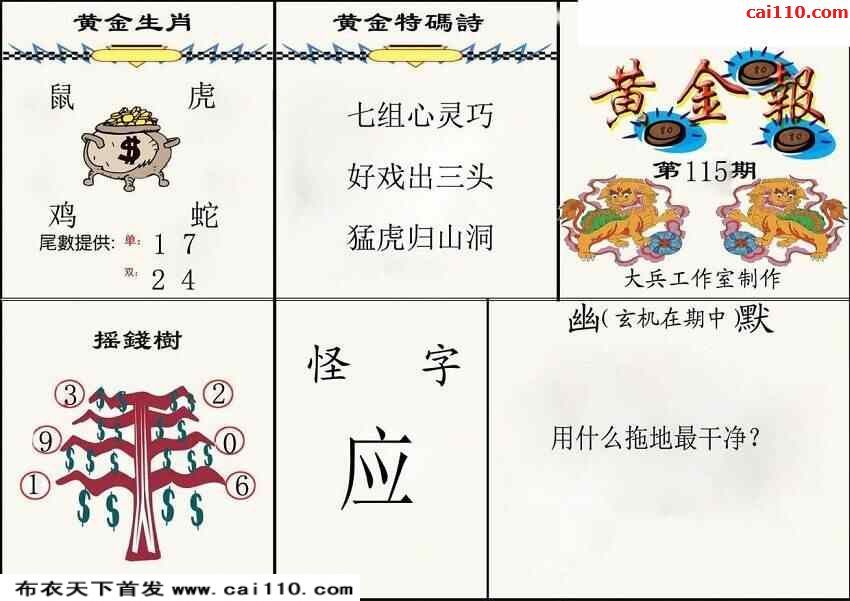 cai110.com
黄金生肖
鼠 虎
$
鸡 蛇
尾數提供: 单: 1 7
双: 2 4
黄金特碼詩
七组心灵巧
好戏出三头
猛虎归山洞
黄金報
80
80
80
第115期
大兵工作室制作
摇錢樹
3 2
9 0
1 6
$ $ $ $
$ $ $ $
$ $ $ $
怪 字
应
幽(玄机在期中)默
用什么拖地最干净?
布衣天下首发 www.cai110.com